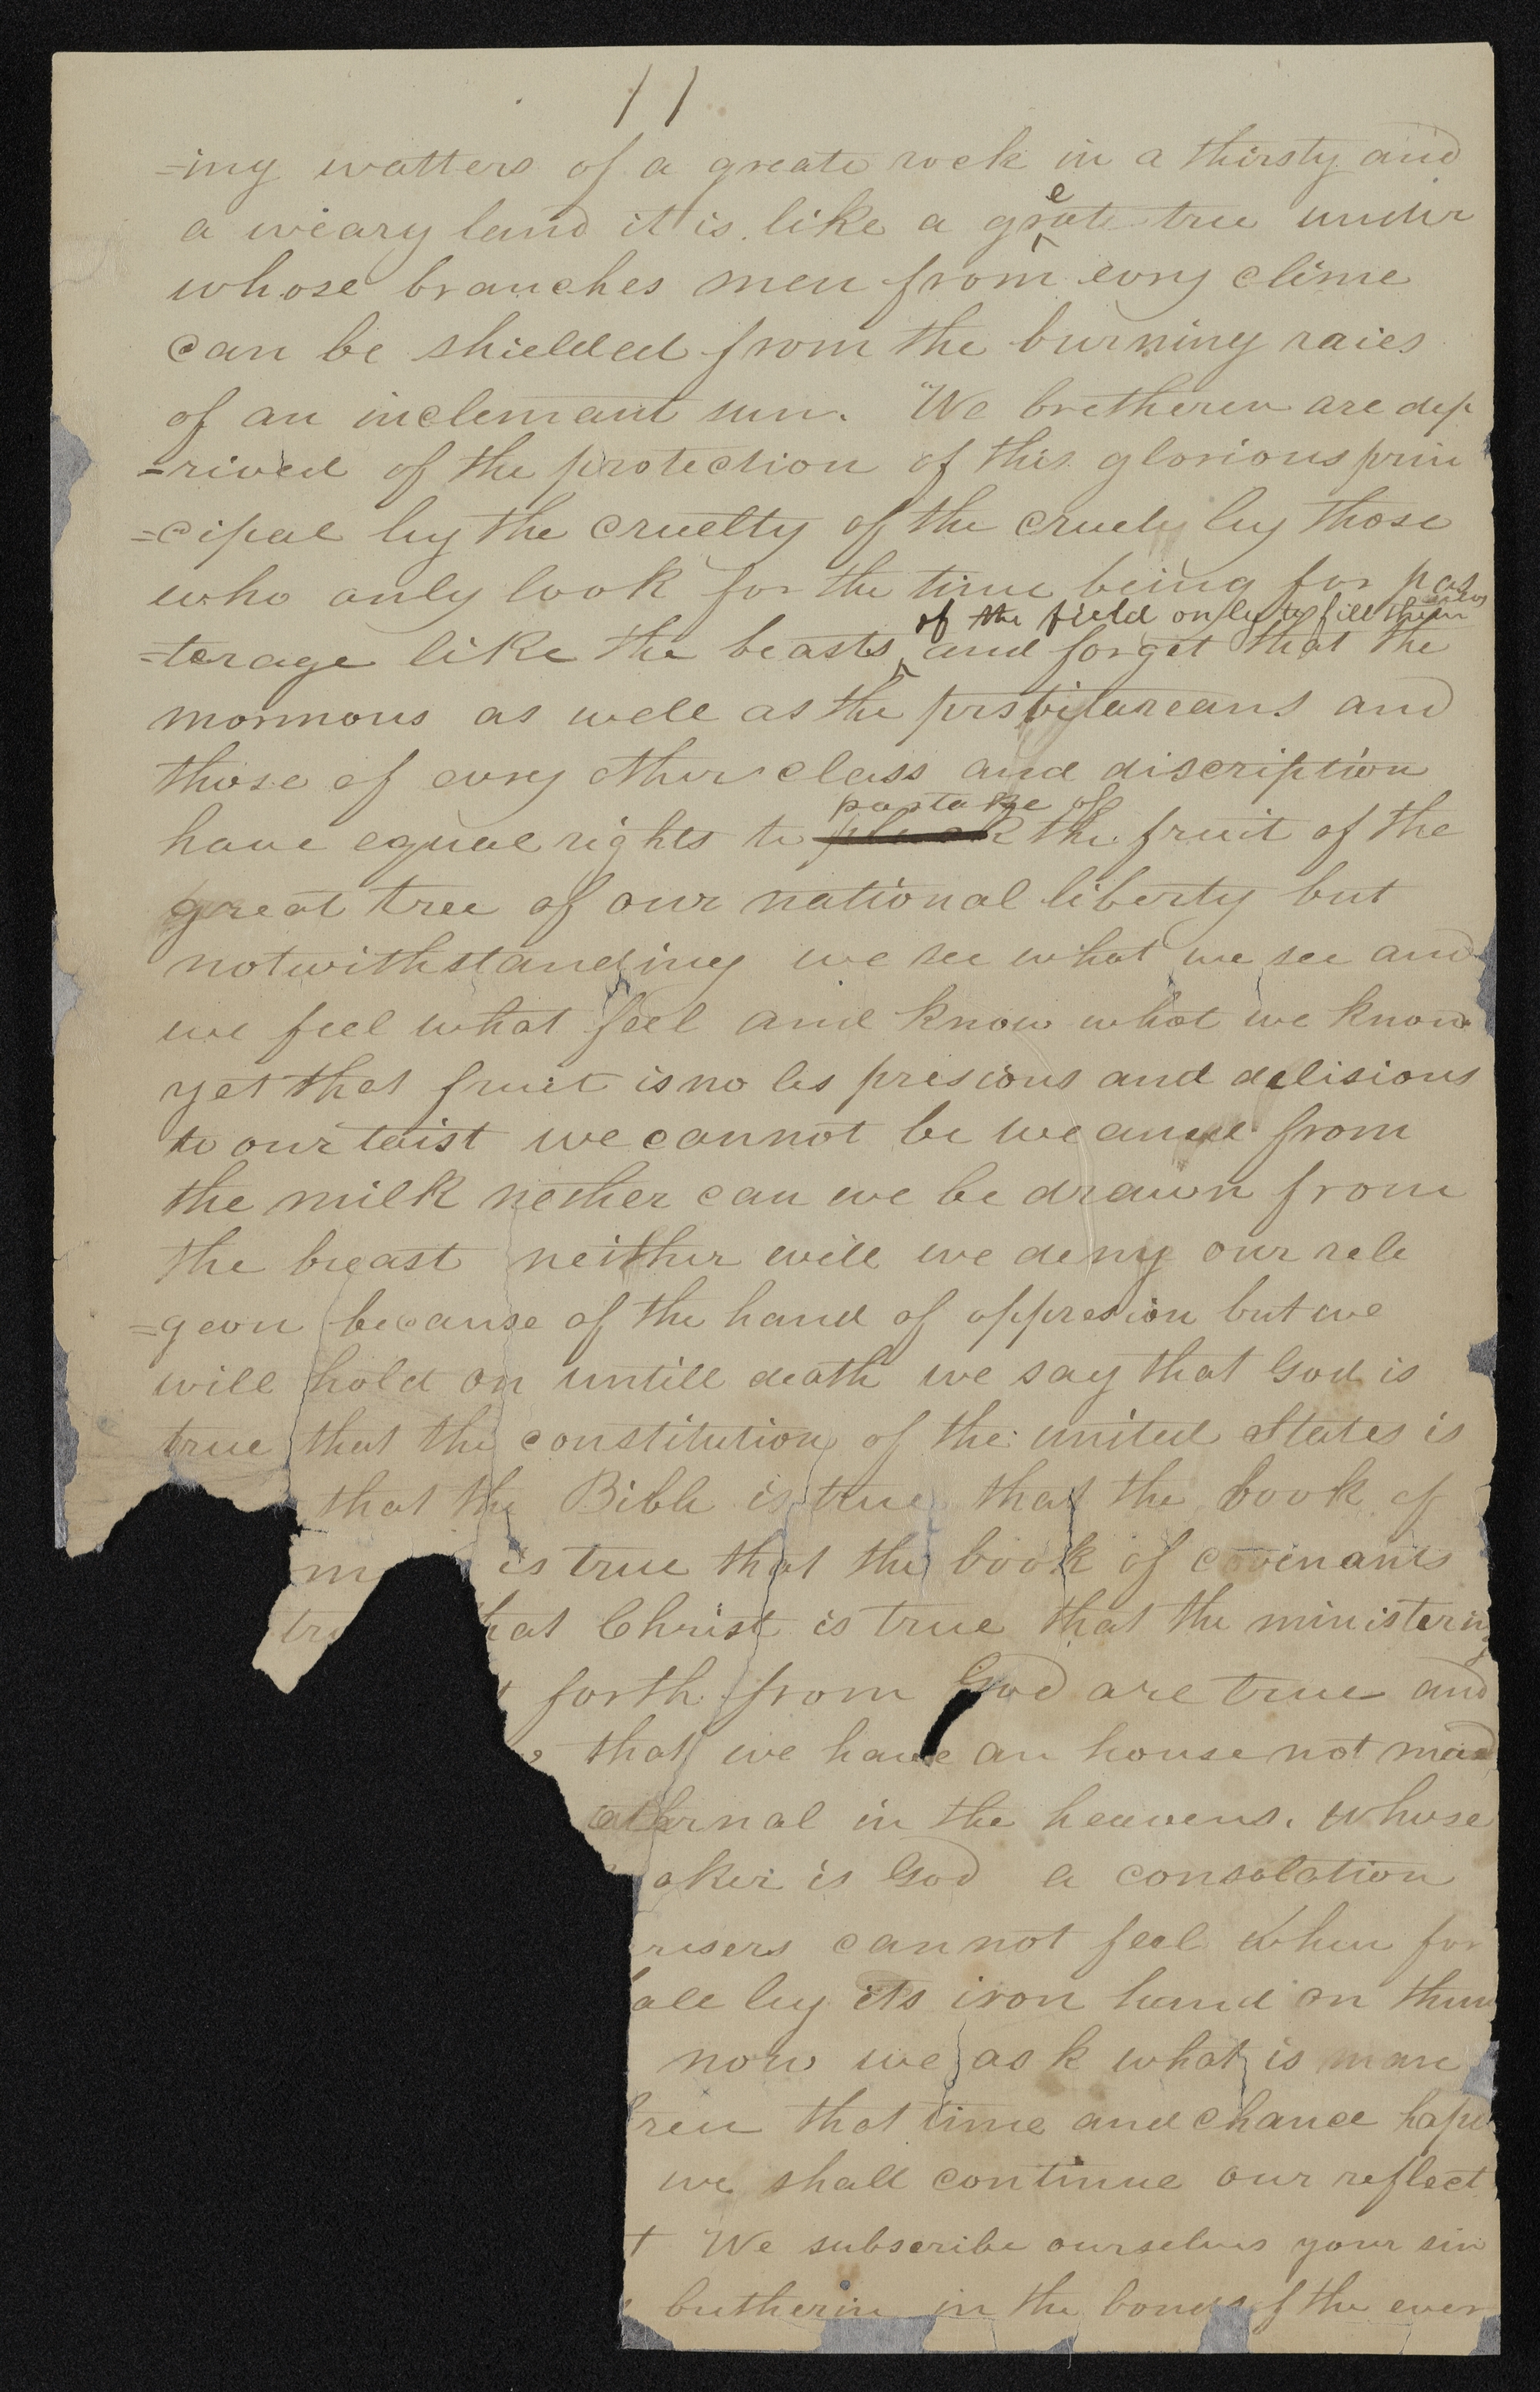 11
=ing watters of a greate rock in a thirsty and
a weary land it is like a great tree under
whose branches men from evry clime
can be shielded from the burning raies
of an inclemant sun. We bretheren are dep
=rived of the protection of this glorious prin
=cipal by the cruelty of the cruel by those
who only look for the time being for pas
of the field only to fill them selvs
=terage like the beasts and forget that the
mormons as well as the prsbitareans and
those of evry other class and discription
partake of
have equal rights to pluck the fruit of the
great tree of our national liberty but
notwithstanding we see what we see and
we feel what feel and know what we know
yet that fruit is no les presious and delisious
to our taist we cannot be weaned from
the milk nether can we be drawn from
the breast neither will we deny our rele
=geon because of the hand of oppresion but we
will hold on untill death we say that God is
true that the constitution of the united States is
that the Bible is true that the book of
m is true that the book of covenants
tru hat Christ is true that the ministering
t forth from God are true and
that we have an house not mad
eternal in the heavens. whose
aker is God a consolation
ressers cannot feel when for
all lay its iron hand on them
now we ask what is man
ren that time and chance hapen
we shall continue our reflect
t We subscribe ourselves your sin
butherin in the bonds of the ever